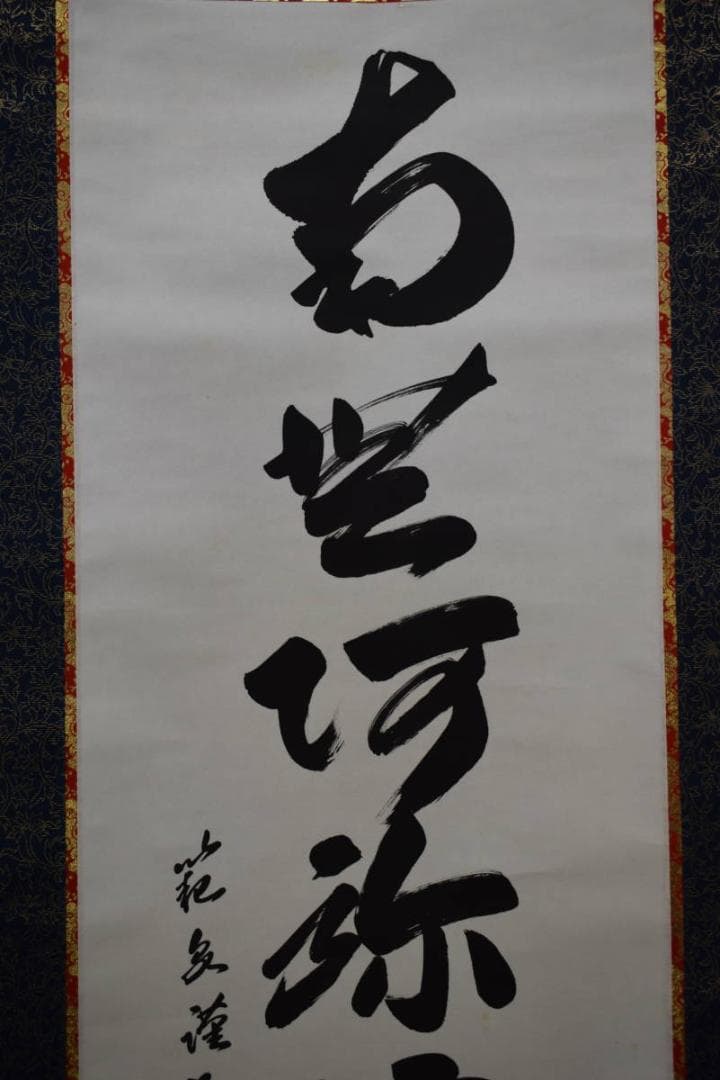 南無阿弥
範
謹